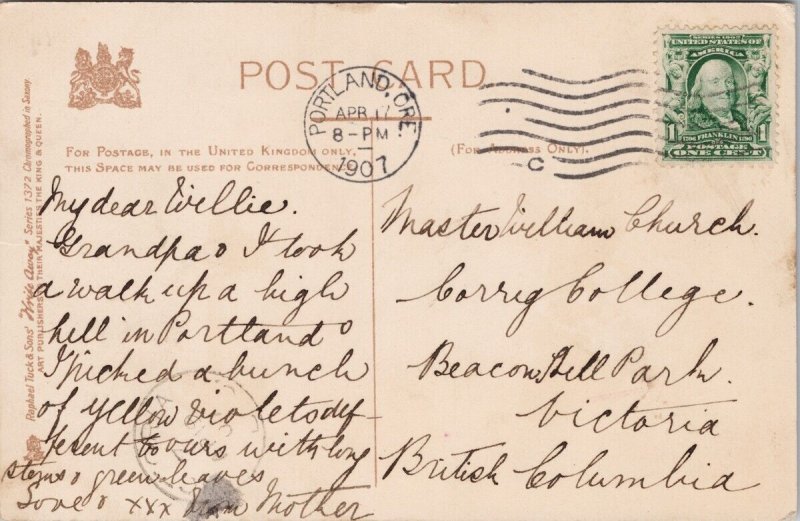 POST CARD
PORTLAND, ORE.
APR 17
8-PM
1907
C
SERIES 1902
UNITED STATES OF
AMERICA
1 1706 FRANKLIN 1790 1
POSTAGE
ONE CENT
FOR POSTAGE, IN THE UNITED KINGDOM ONLY,
THIS SPACE MAY BE USED FOR CORRESPONDENCE
(FOR ADDRESS ONLY).
Raphael Tuck & Sons' "Write Away" Series 1372 Chromographed in Saxony.
ART PUBLISHERS TO THEIR MAJESTIES THE KING & QUEEN.
My dear Willie.
Grandpa & I took
a walk up a high
hill in Portland &
I picked a bunch
of yellow violets dif-
ferent to ours with long
stems & green leaves
Love & xxx from Mother
Master William Church.
Corrig College.
Beacon Hill Park.
Victoria
British Columbia